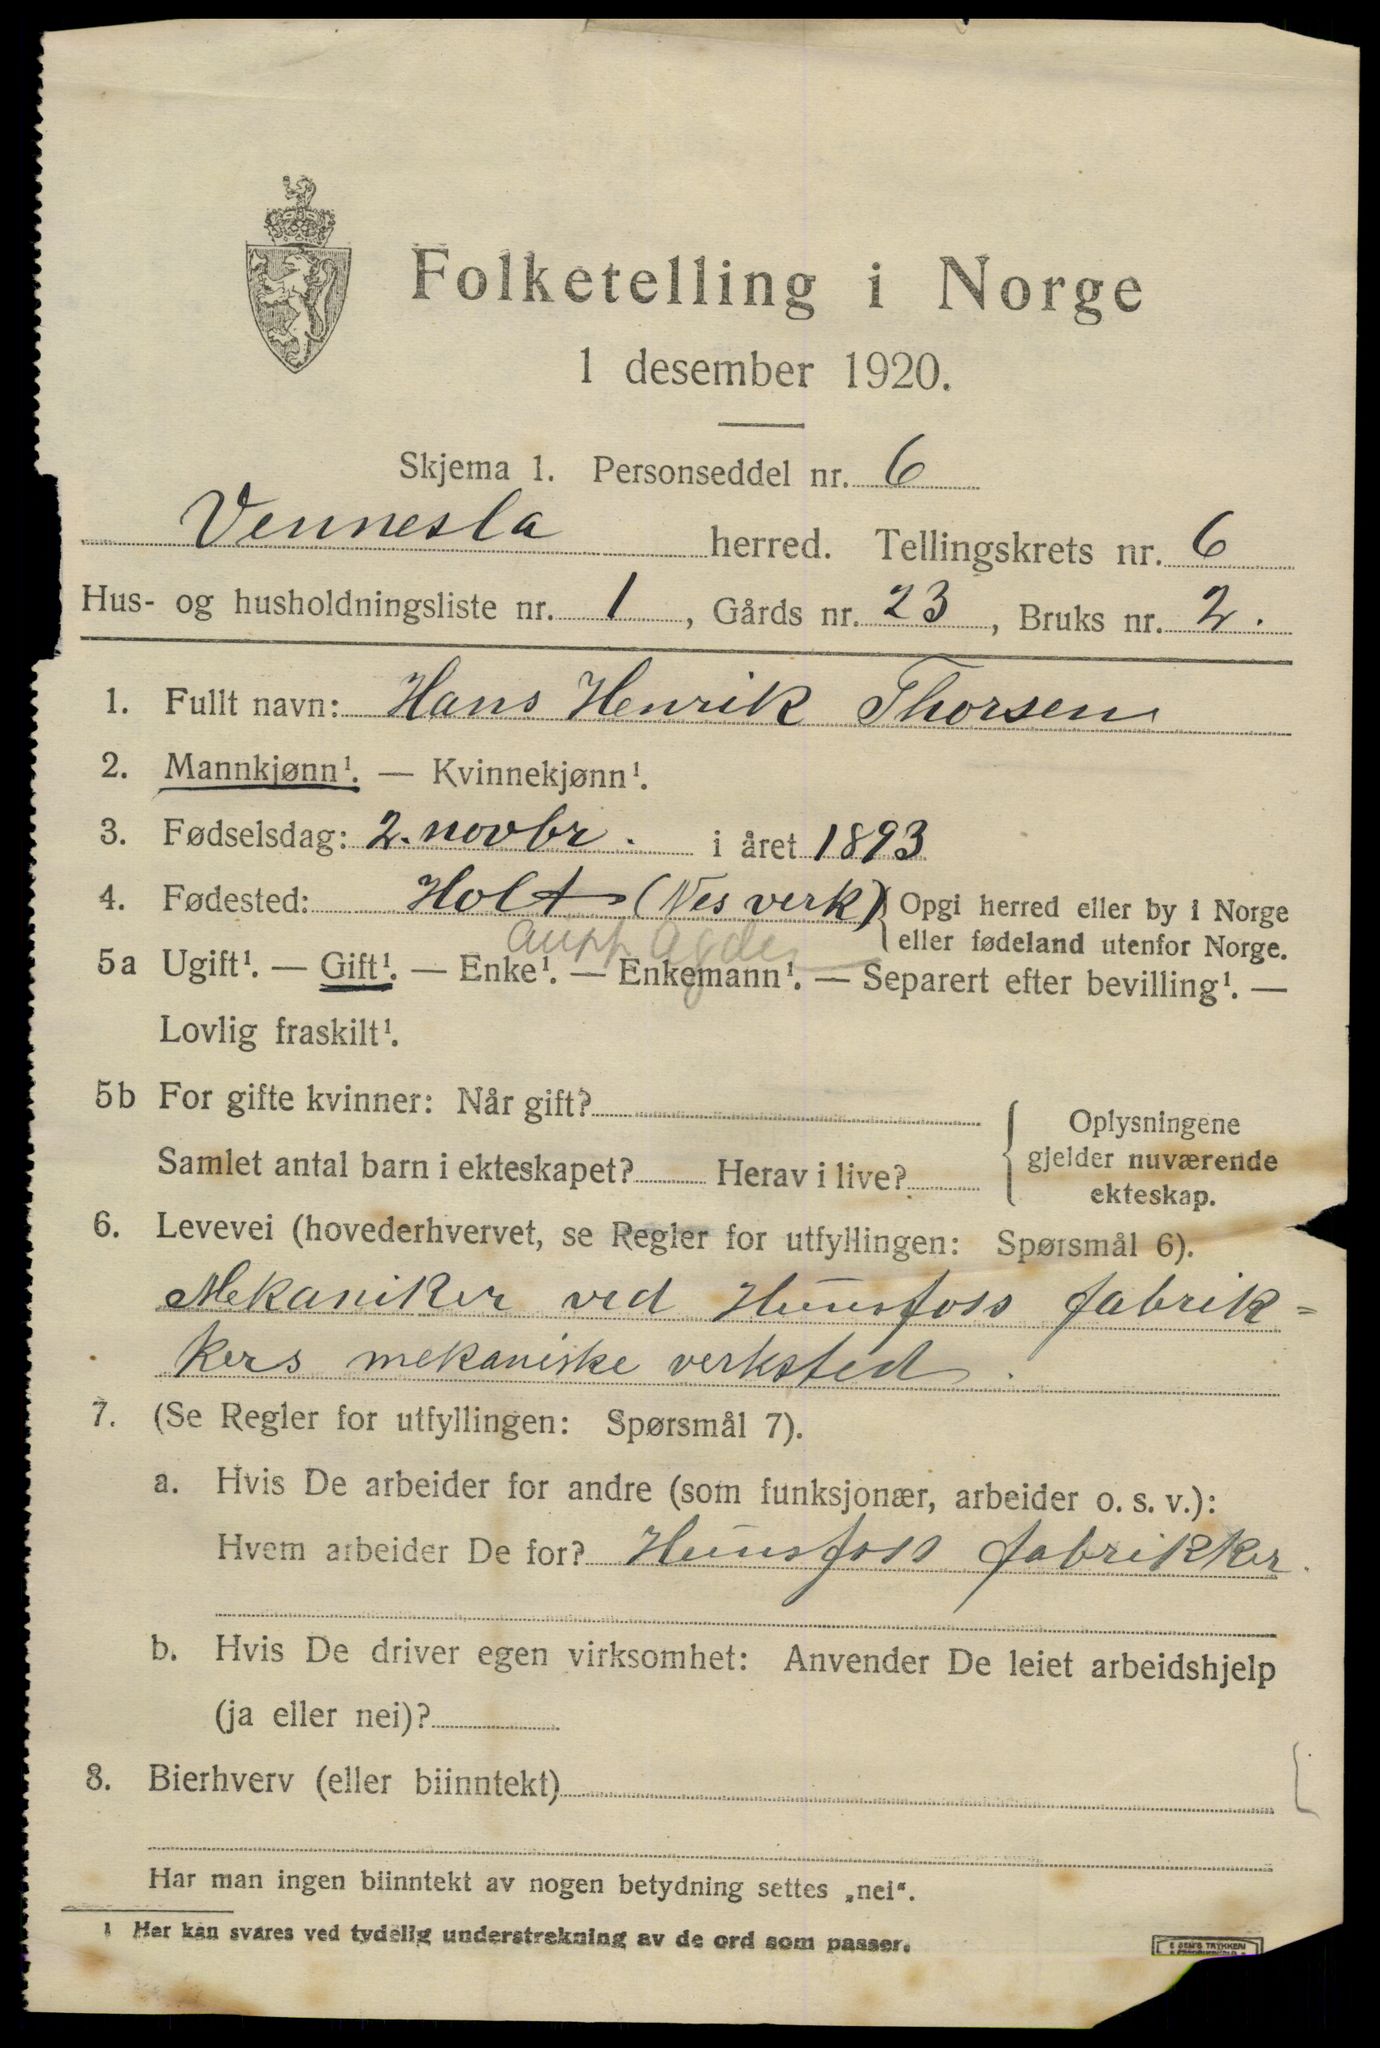 Folketelling i Norge
1 desember 1920.
Skjema 1. Personseddel nr. 6
Vennesla herred. Tellingskrets nr. 6
Hus- og husholdningsliste nr. 1, Gårds nr. 23, Bruks nr. 2.
1. Fullt navn: Hans Henrik Thorsen
2. Mannkjønn¹. — Kvinnekjønn¹.
3. Fødselsdag: 2. novbr. i året 1893
4. Fødested: Holt (Nes verk) { Opgi herred eller by i Norge
eller fødeland utenfor Norge.
Agder
5a Ugift¹. — Gift¹. — Enke¹. — Enkemann¹. — Separert efter bevilling¹. —
Lovlig fraskilt¹.
5b For gifte kvinner: Når gift?
Samlet antal barn i ekteskapet? Herav i live?
{ Oplysningene
gjelder nuværende
ekteskap.
6. Levevei (hovederhvervet, se Regler for utfyllingen: Spørsmål 6).
Mekaniker ved Hunsfoss fabrik=
kers mekaniske verksted.
7. (Se Regler for utfyllingen: Spørsmål 7).
a. Hvis De arbeider for andre (som funksjonær, arbeider o. s. v.):
Hvem arbeider De for? Hunsfoss fabrikker.
b. Hvis De driver egen virksomhet: Anvender De leiet arbeidshjelp
(ja eller nei)?
8. Bierhverv (eller biinntekt)
Har man ingen biinntekt av nogen betydning settes „nei“.
1 Her kan svares ved tydelig understrekning av de ord som passer.